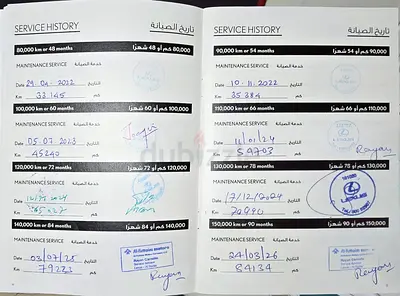 SERVICE HISTORY تاريخ الصيانة
80,000 km or 48 months 80,000 كم أو 48 شهرًا
MAINTENANCE SERVICE خدمة الصيانة
Date 29.04.2022 التاريخ
Km 33.145 كم
100,000 km or 60 months 100,000 كم أو 60 شهرًا
MAINTENANCE SERVICE خدمة الصيانة
Date 05.07.2023 التاريخ
Km 45242 كم
120,000 km or 72 months 120,000 كم أو 72 شهرًا
MAINTENANCE SERVICE خدمة الصيانة
Date التاريخ
Km كم
140,000 km or 84 months 140,000 كم أو 84 شهرًا
MAINTENANCE SERVICE خدمة الصيانة
Date 03/07/25 التاريخ
Km 79223 كم
Al-Futtaim
Rayan
SERVICE HISTORY تاريخ الصيانة
90,000 km or 54 months 90,000 كم أو 54 شهرًا
MAINTENANCE SERVICE خدمة الصيانة
Date 10.11.2022 التاريخ
Km 35384 كم
110,000 km or 66 months 110,000 كم أو 66 شهرًا
MAINTENANCE SERVICE خدمة الصيانة
Date 11/01/24 التاريخ
Km كم
Rayan
130,000 km or 78 months 130,000 كم أو 78 شهرًا
MAINTENANCE SERVICE خدمة الصيانة
Date 17/12/2024 التاريخ
Km 72980 كم
LEXUS
150,000 km or 90 months 150,000 كم أو 90 شهرًا
MAINTENANCE SERVICE خدمة الصيانة
Date 24/03/26 التاريخ
Km 84134 كم
Al-Futtaim
Rayan
dubizzle